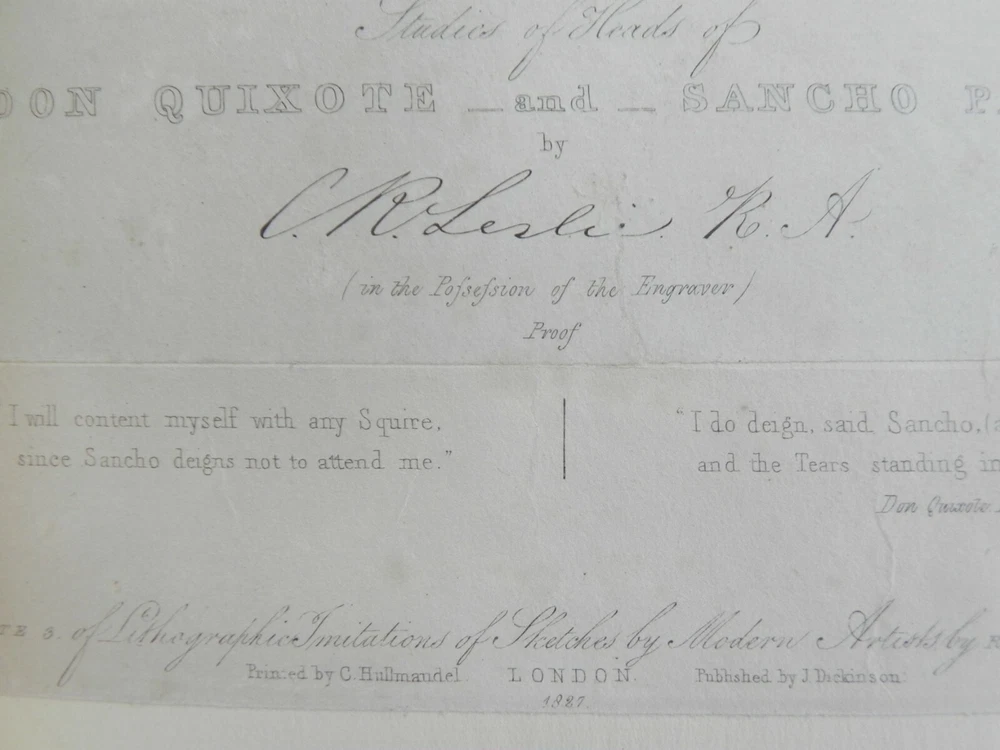 Studies of Heads of
DON QUIXOTE — and — SANCHO P
by
C. R. Leslie. R. A.
(in the Poſseſsion of the Engraver)
Proof
I will content myself with any Squire,
since Sancho deigns not to attend me."
"I do deign, said Sancho, (a
and the Tears standing in
Don Quixote.
TE 3. of Lithographic Imitations of Sketches by Modern Artists by R
Printed by C. Hullmandel. LONDON. Published by J. Dickinson.
1827.